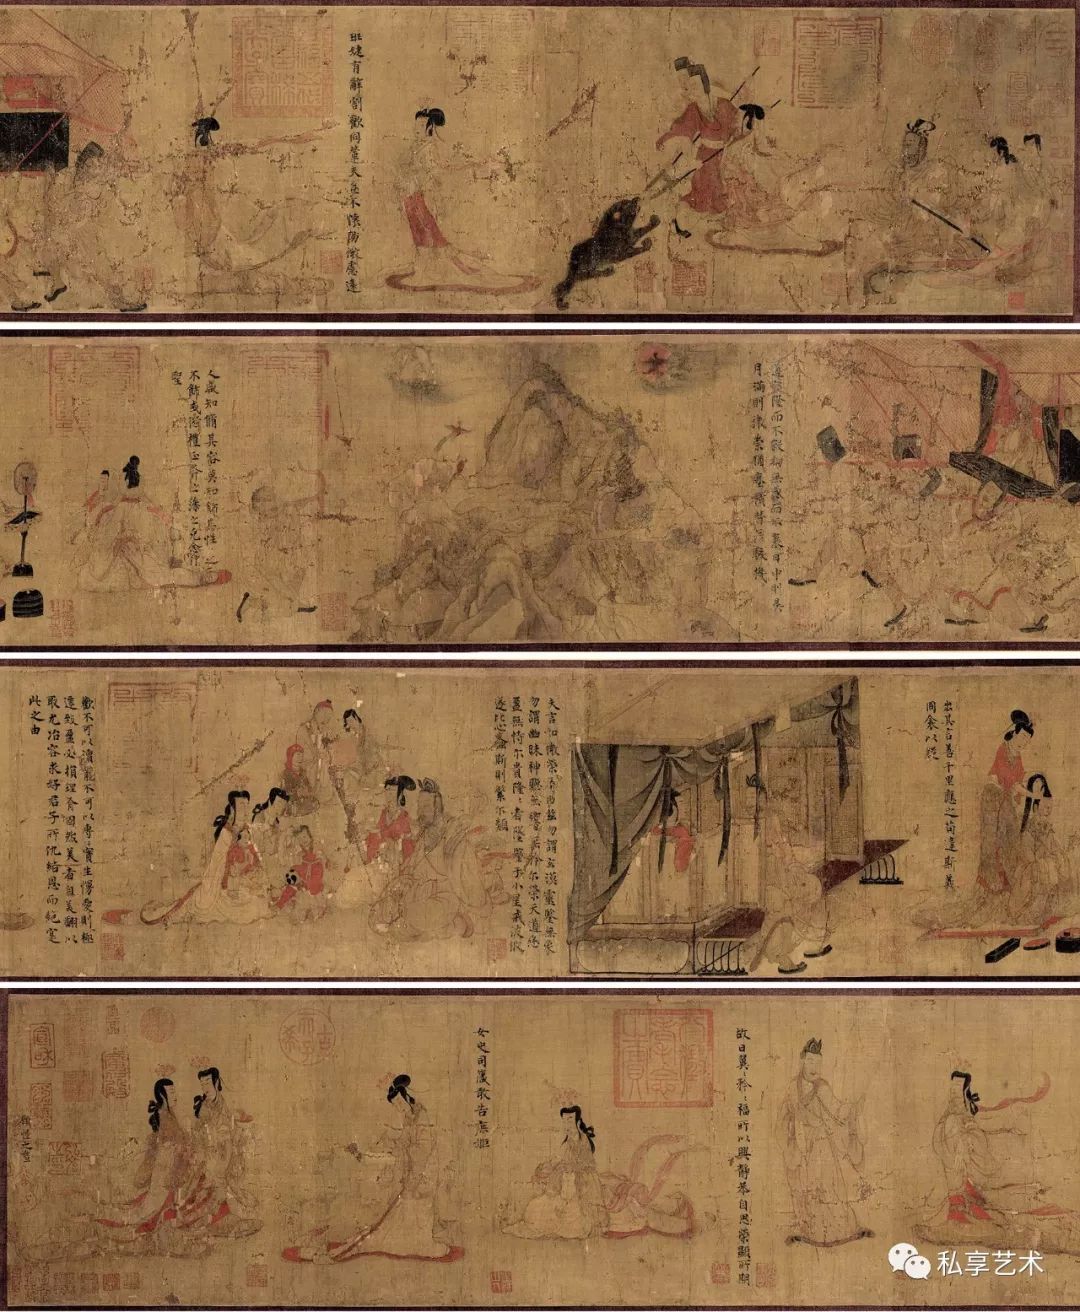 班婕有辭割歡同輦夫豈不懷防微慮遠
道罔隆而不殺物無盛而不衰日中則昃
月滿則微崇猶塵積替若駭機
人咸知脩其容莫知飾其性〻之
不飾或愆禮正斧之藻之克念作
聖
出其言善千里應之苟違斯義
同衾以疑
夫言如微榮辱由茲勿謂玄漠靈鑒無象
勿謂幽昧神聽無響無矜尔榮天道惡
盈無恃尔貴隆〻者墜鑒于小星戒彼攸
遂比心螽斯則繁尔類
歡不可以瀆寵不可以專〻實生慢愛則極
遷致盈必損理有固然美者自美翩以
取尤冶容求好君子所仇結恩而絕寔
此之由
故曰翼〻矜〻福所以興靜恭自思榮顯所期
女史司箴敢告庶姬
顧愷之畫
私享艺术